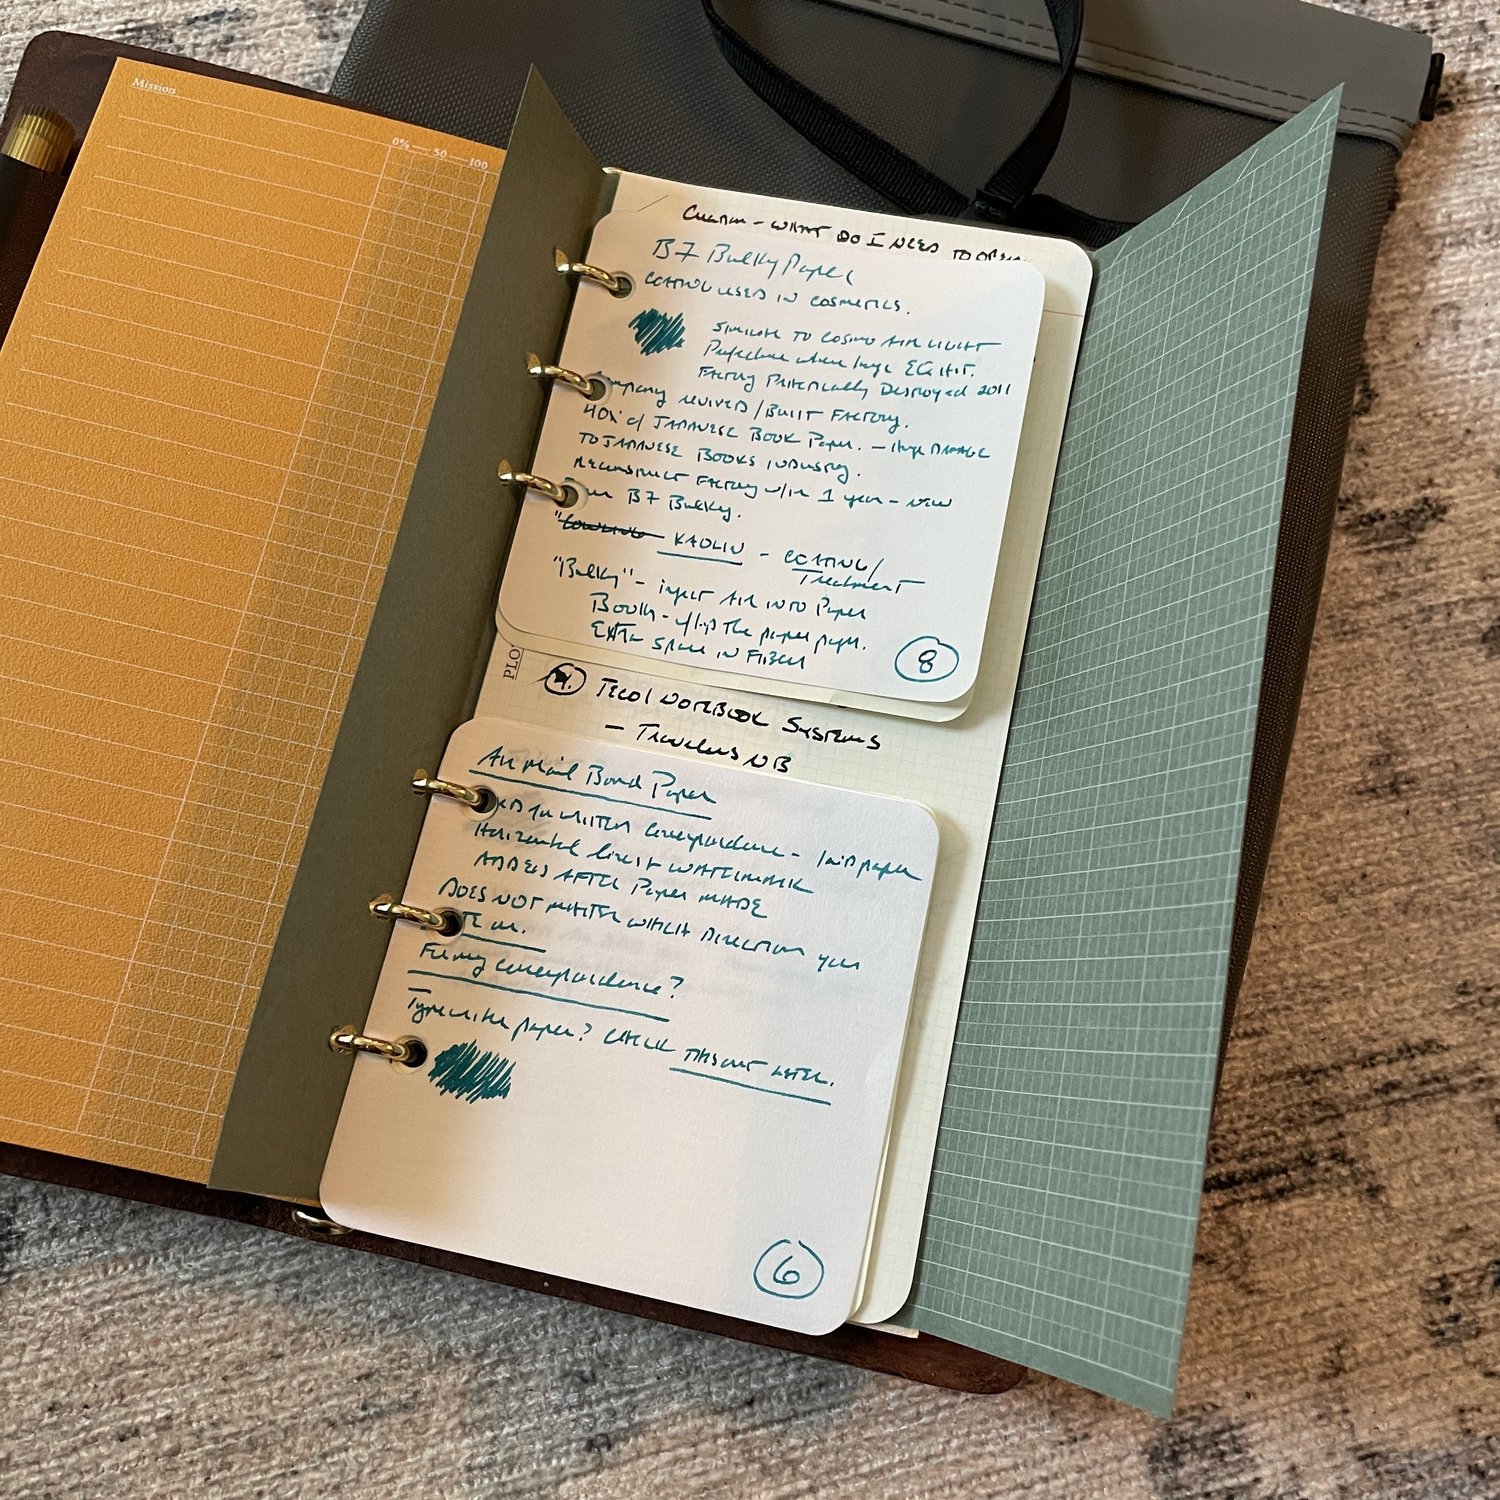 Mission
0% — 50 — 100
WHAT DO I NEED TO
B7 Bulky Paper
COATING USED IN COSMETICS.
SIMILAR TO COSMO AIR LIGHT
Prefecture where huge EQ HIT.
FACTORY PRACTICALLY DESTROYED 2011
Company REVIVED / BUILT FACTORY.
40% of JAPANESE BOOK PAPER. — Huge DAMAGE
TO JAPANESE BOOKS INDUSTRY.
RECONSTRUCT FACTORY w/in 1 year - NEW
B7 Bulky.
KAOLIN - COATING/
Treatment
"Bulky" - inject AIR INTO Paper
Books - the paper pages.
EXTRA SPACE IN FIBER
8
PLO
NOTEBOOK SYSTEMS
— Travelers NB
Air Mail Bond Paper
for written correspondence - laid paper
Horizontal lines + WATERMARK
ADDED AFTER Paper MADE
DOES NOT MATTER WHICH DIRECTION you
correspondence?
Typewriter paper? CHECK THIS OUT LATER.
6